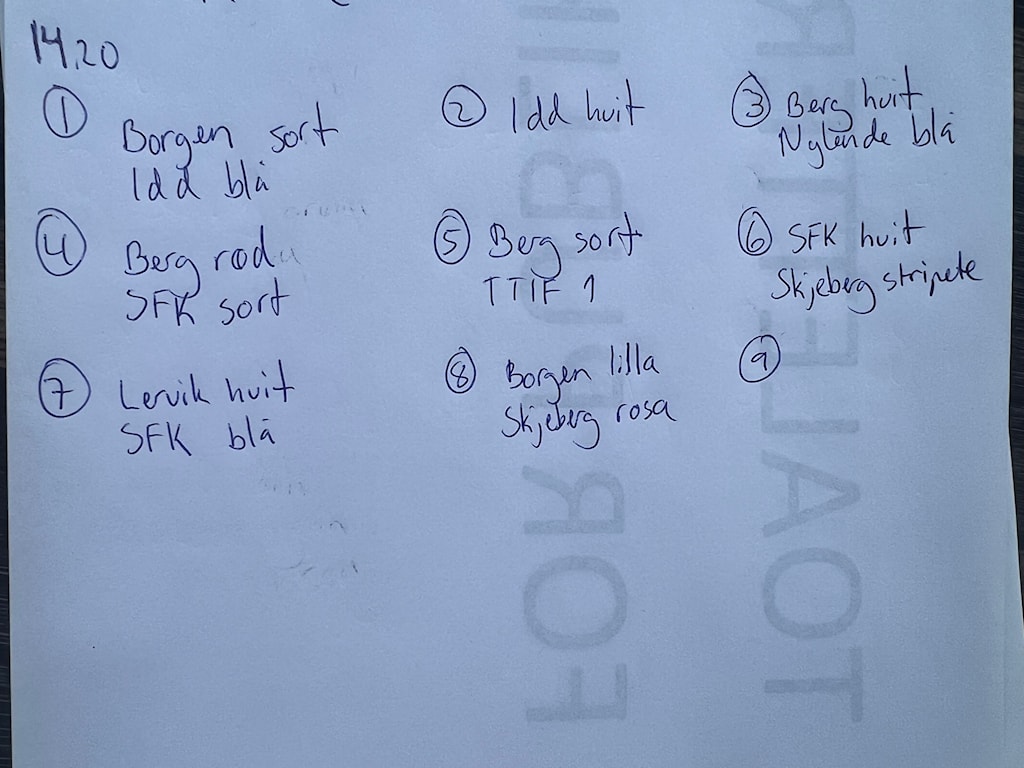 14.20
① Borgen sort
Idd blå
② Idd hvit
③ Berg hvit
Nylende blå
④ Berg rød
SFK sort
⑤ Berg sort
TTIF 1
⑥ SFK hvit
Skjeberg stripete
⑦ Lervik hvit
SFK blå
⑧ Borgen lilla
Skjeberg rosa
⑨
FOR
TOALETT